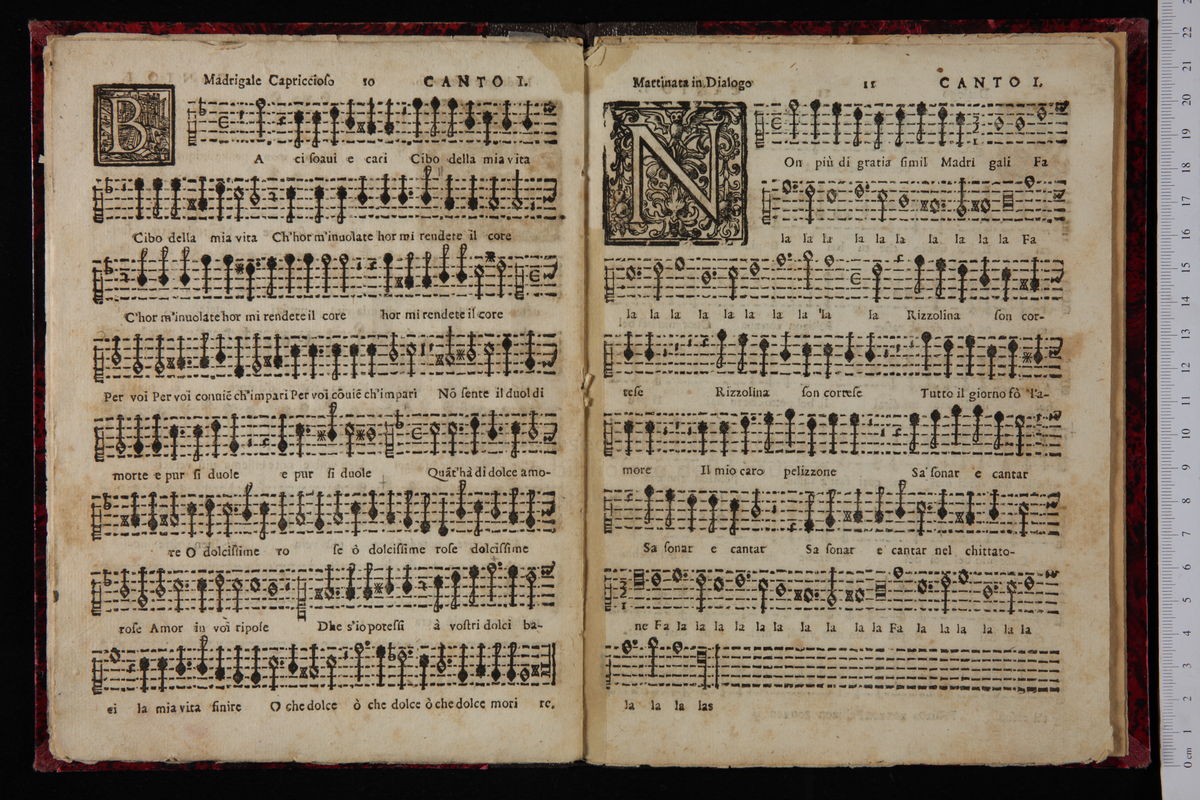 Madrigale Capriccioso 10 CANTO I.
BA ci soaui e cari Cibo della mia vita
Cibo della mia vita Ch'hor m'inuolate hor mi rendete il core
C'hor m'inuolate hor mi rendete il core hor mi rendete il core
Per voi Per voi conuiē ch'impari Per voi cōuiē ch'impari Nō sente il duol di
morte e pur si duole e pur si duole Quāt'hà di dolce amo-
re O dolcissime ro se ò dolcissime rose dolcissime
rose Amor in voi ripose Dhe s'io potessi à vostri dolci ba-
ci la mia vita finire O che dolce ò che dolce ò che dolce mori re.
Mattinata in Dialogo 11 CANTO I.
NOn più di gratia simil Madri gali Fa
la la la la la la la la la la Fa
la la la la la la la la la la Rizzolina son cor-
tese Rizzolina son cortese Tutto il giorno fò l'a-
more Il mio caro pelizzone Sa sonar e cantar
Sa sonar e cantar Sa sonar e cantar nel chittato-
ne Fa la la la la la la la la la Fa la la la la la la
la la la las
0 cm 1 2 3 4 5 6 7 8 9 10 11 12 13 14 15 16 17 18 19 20 21 22